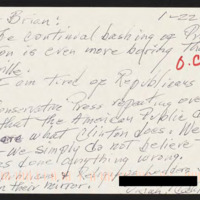 Brian: 1-22
The continual bashing of Pr
on is even more boring th
ville. O.C
I am tired of Republicans
onservative Press repeating over
that the American Public d
care what Clinton does. We
we simply do not believe
has done anything wrong.
& Religious leaders
in their mirror.